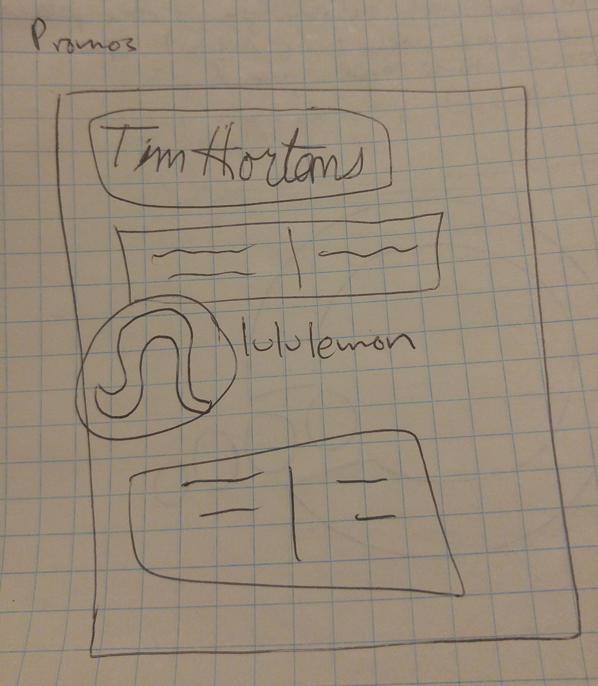 Promos
Tim Hortons
lululemon